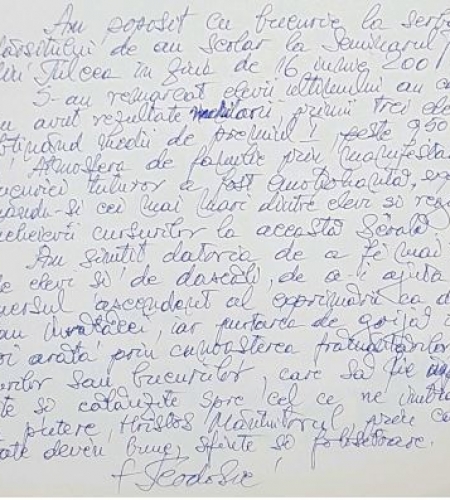 Am poposit cu bucurie la serb
ârșitului de an școlar la Seminarul T
din Tulcea în ziua de 16 iunie 2001
S-au remarcat elevii ultimului an c
u avut rezultate primii trei ele
bținând medii de premiul I, peste 9,50
Atmosfera de familie prin manifesta
ucuriei tuturor a fost emoționantă,
-și cei mai mari dintre elevi și reg
ncheierii cursurilor la această Școală
Am simțit datoria de a fi mai
de elevi și de dascăli, de a-i ajuta
mersul ascendent al exprimării ca
au învățăcei, iar purtarea de grijă
oi arăta prin cunoașterea frământărilor
erilor sau bucuriilor, care să fie
te și călăuzite spre cel ce ne
putere, Hristos Mântuitorul, prin ca
ate devin bune, sfinte și folositoare.
† Teodosie